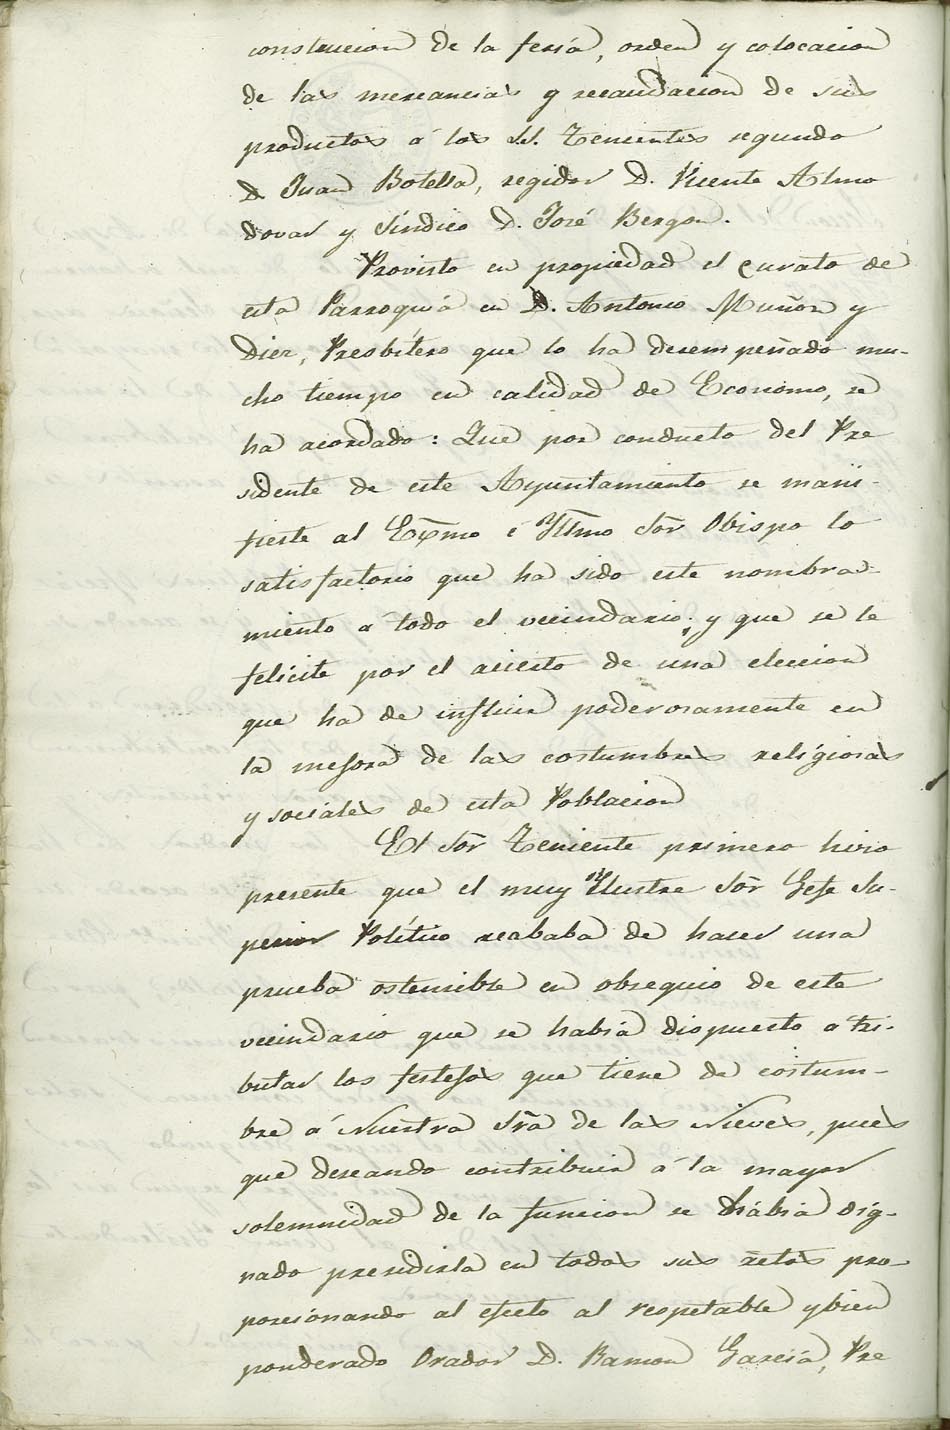 construccion de la feria, orden y colocacion
de las mercancias y recaudacion de sus
productos á los SS. Tenientes segundo
D. Juan Botella, regidor D. Vicente Almo
dovar y Síndico D. José Bergon.
Provisto en propiedad el curato de
esta Parroquia en D. Antonio Muñoz y
Diez, Presbítero que lo ha desempeñado mu-
cho tiempo en calidad de Economo, se
ha acordado: Que por conducto del Pre
sidente de este Ayuntamiento se mani-
fieste al Excmo é Yllmo Sór Obispo lo
satisfactorio que ha sido este nombra-
miento a todo el vecindario; y que se le
felicite por el acierto de una eleccion
que ha de influir poderosamente en
la mejora de las costumbres religiosas
y sociales de esta Poblacion
El Sór Teniente primero hizo
presente que el muy Ylustre Sór Gefe Su-
perior Político acababa de hacer una
prueba ostensible en obsequio de este
vecindario que se habia dispuesto a tri-
butar los festejos que tiene de costum-
bre á Nuestra Srã de las Nieves, pues
que deseando contribuir á la mayor
solemnidad de la funcion se habia dig-
nado presidirla en todos sus actos pro
porcionando al efecto al respetable y bien
ponderado Orador D. Ramon Garcia, Pre